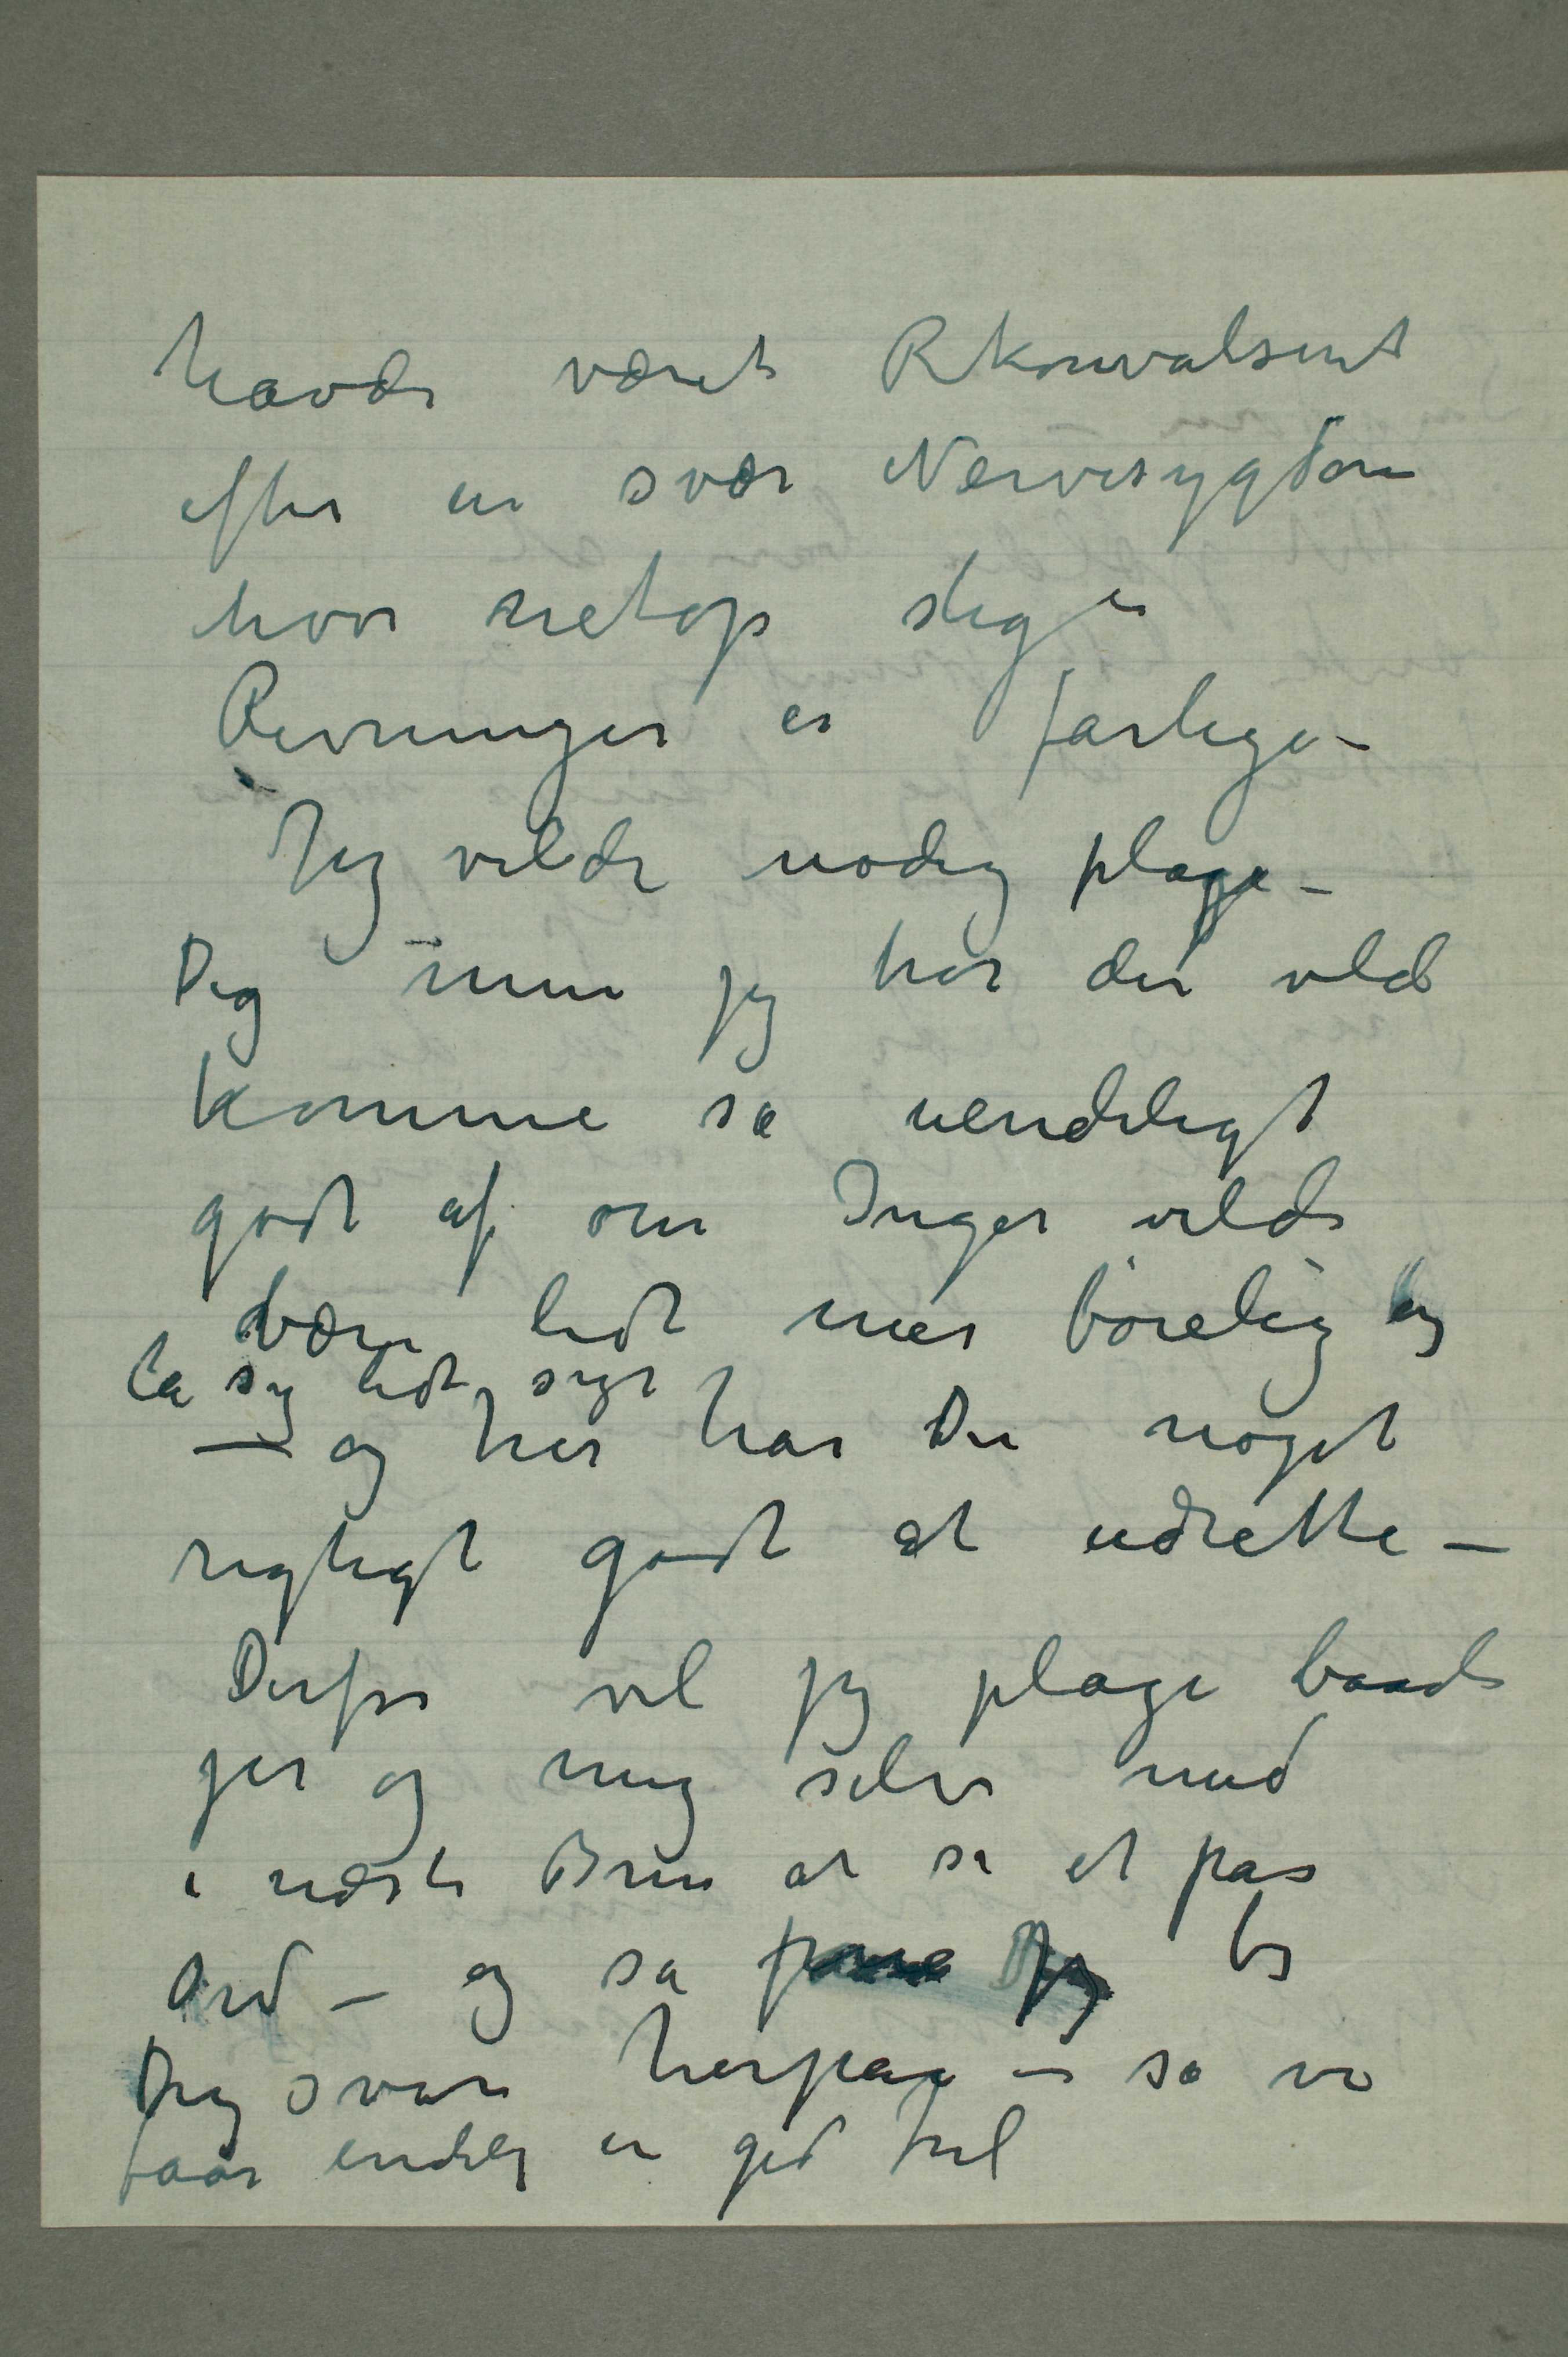 havde været Rkonvalsent
efter en svær Nervesygdom
hvor netop slige
Rivninger er farlige –
Jeg vilde nødig plage –
Dig men jeg har der vild
komme så uendeligt
godt af om Inger vilde
være lidt mer bøielig og
ta sig lidt sigt
– og her har Du noget
rigtigt godt at udrette –
Derfor vil jeg plage baade
jer og mig selv med
i næste Brev at si et par
Ord – og så bs
Dig svare herpaa – så vi
faar endelig en god Jul